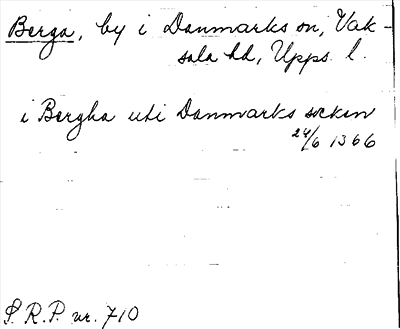 Berga, by i Danmarks sn, Vak-
sala hd, Upps. l.
i Bergha uti Danmarks socken
24/6 1366
S. R. P. nr. 710